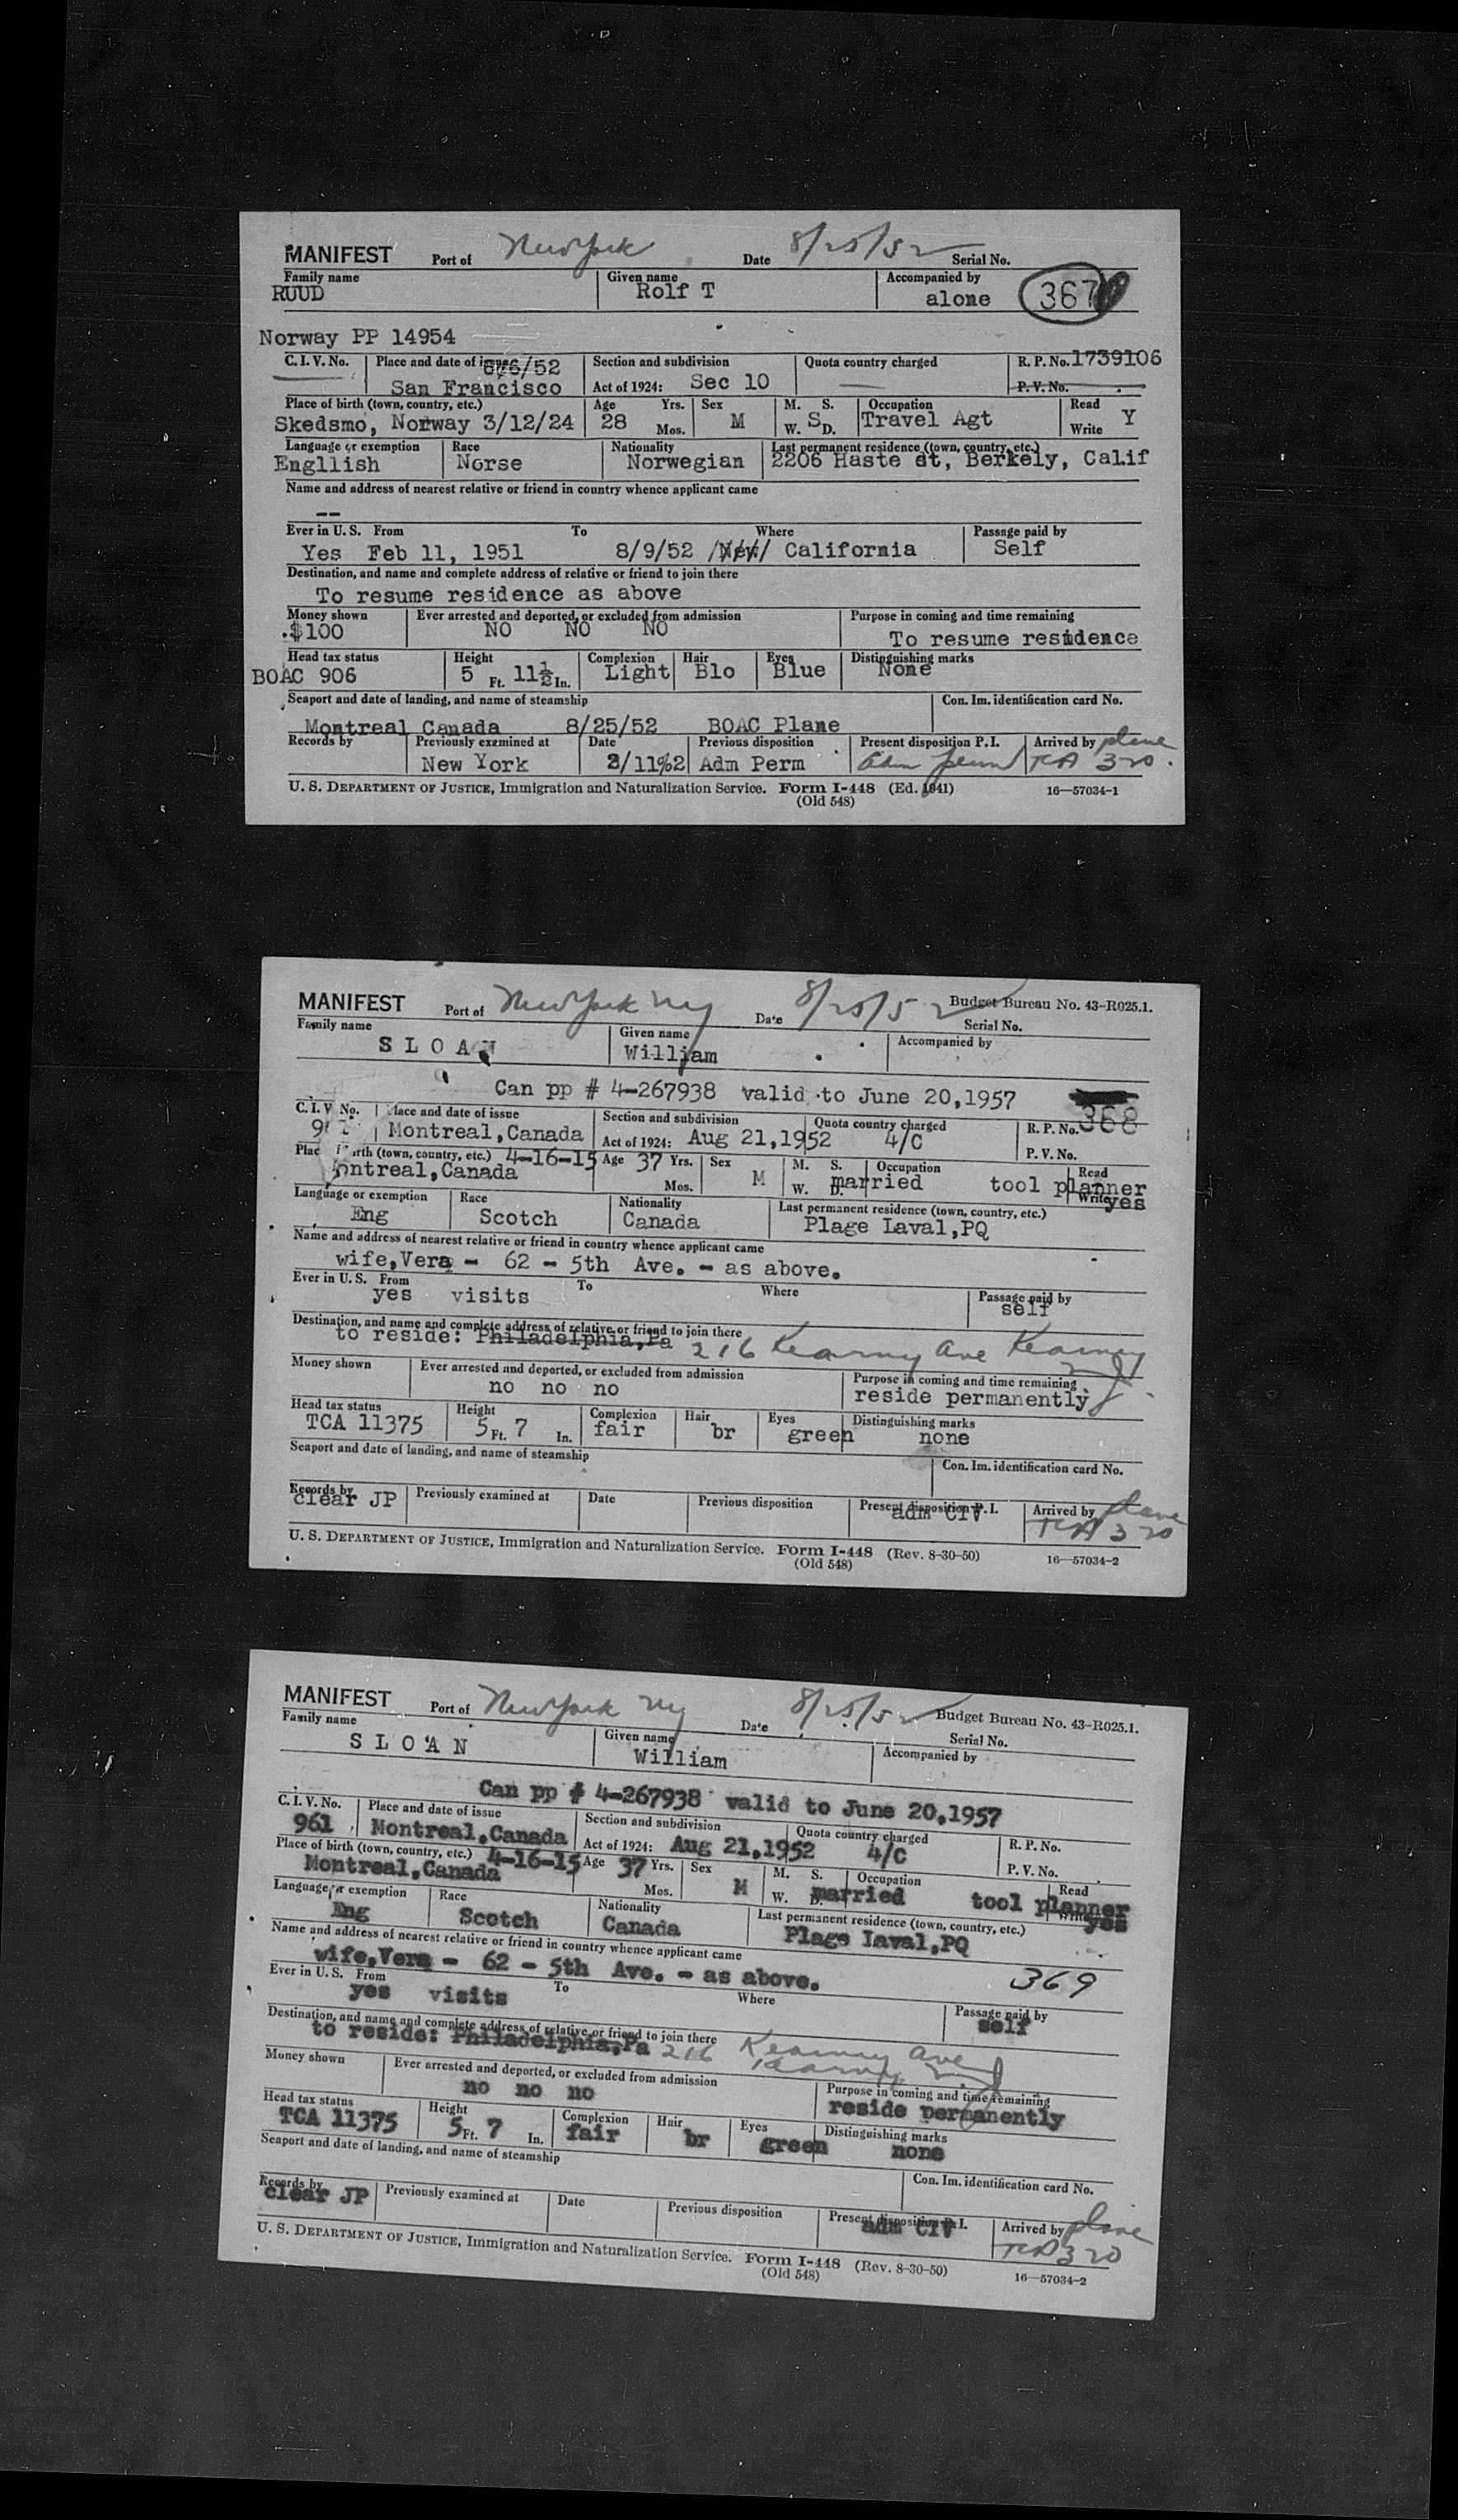 MANIFEST Port of New York Date 8/25/52 Serial No.
Family name Given name Accompanied by
RUUD Rolf T alone 367
Norway PP 14954
C. I. V. No. Place and date of issue 8/6/52 Section and subdivision Quota country charged R. P. No. 1739106
San Francisco Act of 1924: Sec 10 P. V. No.
Place of birth (town, country, etc.) Age Yrs. Sex M. S. Occupation Read
Skedsmo, Norway 3/12/24 28 Mos. M W. S D. Travel Agt Write Y
Language or exemption Race Nationality Last permanent residence (town, country, etc.)
Engllish Norse Norwegian 2206 Haste st, Berkely, Calif
Name and address of nearest relative or friend in country whence applicant came
--
Ever in U. S. From To Where Passage paid by
Yes Feb 11, 1951 8/9/52 California Self
Destination, and name and complete address of relative or friend to join there
To resume residence as above
Money shown Ever arrested and deported, or excluded from admission Purpose in coming and time remaining
$100 NO NO NO To resume residence
Head tax status Height Complexion Hair Eyes Distinguishing marks
BOAC 906 5 Ft. 11½ In. Light Blo Blue None
Seaport and date of landing, and name of steamship Con. Im. identification card No.
Montreal Canada 8/25/52 BOAC Plane
Records by Previously examined at Date Previous disposition Present disposition P. I. Arrived by plane
New York 2/11%2 Adm Perm adm perm TCA 320
U. S. DEPARTMENT OF JUSTICE, Immigration and Naturalization Service. Form I-448 (Ed. 1941) 16—57034-1
(Old 548)
MANIFEST Port of New York NY Date 8/25/52 Budget Bureau No. 43-R025.1.
Serial No.
Family name Given name Accompanied by
SLOAN William
Can pp # 4-267938 valid to June 20,1957
C. I. V. No. Place and date of issue Section and subdivision Quota country charged R. P. No. 368
Montreal,Canada Act of 1924: Aug 21,1952 4/C P. V. No.
birth (town, country, etc.) 4-16-15 Age 37 Yrs. Sex M. S. Occupation Read
ontreal,Canada Mos. M W. D. married tool planner Write yes
Language or exemption Race Nationality Last permanent residence (town, country, etc.)
Eng Scotch Canada Plage Laval,PQ
Name and address of nearest relative or friend in country whence applicant came
wife,Vera - 62 - 5th Ave. - as above.
Ever in U. S. From To Where Passage paid by
yes visits self
Destination, and name and complete address of relative or friend to join there
to reside: Philadelphia,Pa 216 Kearny Ave Kearney NJ
Money shown Ever arrested and deported, or excluded from admission Purpose in coming and time remaining
no no no reside permanently
Head tax status Height Complexion Hair Eyes Distinguishing marks
TCA 11375 5 Ft. 7 In. fair br green none
Seaport and date of landing, and name of steamship Con. Im. identification card No.
Records by Previously examined at Date Previous disposition Present disposition P. I. Arrived by plane
clear JP adm CIV TCA 320
U. S. DEPARTMENT OF JUSTICE, Immigration and Naturalization Service. Form I-448 (Rev. 8-30-50) 16—57034-2
(Old 548)
MANIFEST Port of New York NY Date 8/25/52 Budget Bureau No. 43-R025.1.
Serial No.
Family name Given name Accompanied by
SLOAN William
Can pp # 4-267938 valid to June 20,1957
C. I. V. No. Place and date of issue Section and subdivision Quota country charged R. P. No.
961 Montreal,Canada Act of 1924: Aug 21,1952 4/C P. V. No.
Place of birth (town, country, etc.) 4-16-15 Age 37 Yrs. Sex M. S. Occupation Read
Montreal,Canada Mos. M W. D. married tool planner Write yes
Language or exemption Race Nationality Last permanent residence (town, country, etc.)
Eng Scotch Canada Plage Laval,PQ
Name and address of nearest relative or friend in country whence applicant came
wife,Vera - 62 - 5th Ave. - as above. 369
Ever in U. S. From To Where Passage paid by
yes visits self
Destination, and name and complete address of relative or friend to join there
to reside: Philadelphia,Pa 216 Kearny Ave
Kearny NJ
Money shown Ever arrested and deported, or excluded from admission Purpose in coming and time remaining
no no no reside permanently
Head tax status Height Complexion Hair Eyes Distinguishing marks
TCA 11375 5 Ft. 7 In. fair br green none
Seaport and date of landing, and name of steamship Con. Im. identification card No.
Records by Previously examined at Date Previous disposition Present disposition P. I. Arrived by plane
clear JP adm CIV TCA 320
U. S. DEPARTMENT OF JUSTICE, Immigration and Naturalization Service. Form I-448 (Rev. 8-30-50) 16—57034-2
(Old 548)